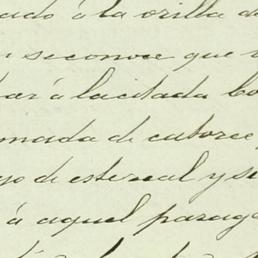 ado á la orilla de
se conoce que
á la citada
mada de catorce
go de este real y se
á aquel parage